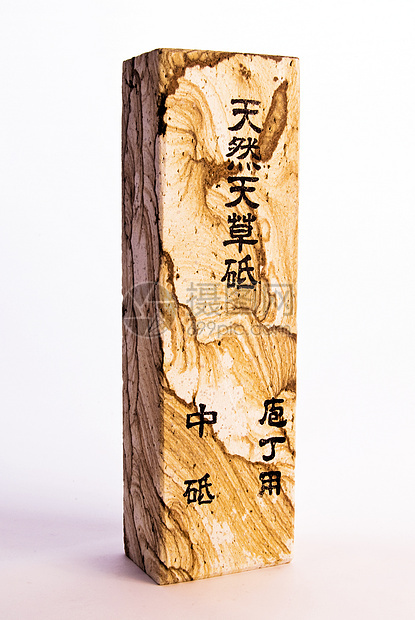 天然天草砥
庖丁用
中砥
摄图网
699pic.com